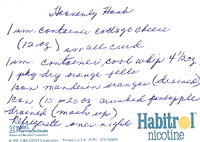 Heavenly Hash
1 sm. container cottage cheese
(12 oz) small curd
1 sm. container cool whip 4 1/2 oz.
1 pkg dry orange jello
1 can mandarin oranges (drained)
1 can (15 - 20 oz crushed pineapple
drained (mash up)
Refrigerate over night
Pharmaceuticals
Habitrol
nicotine